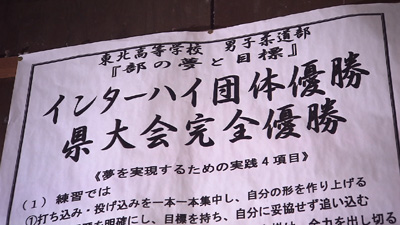 東北高等学校 男子柔道部
『部の夢と目標』
インターハイ団体優勝
県大会完全優勝
《夢を実現するための実践4項目》
(1) 練習では
①打ち込み・投げ込みを一本一本集中し、自分の形を作り上げる
を明確にし、目標を持ち、自分に妥協せず追い込む
全力を出し切る